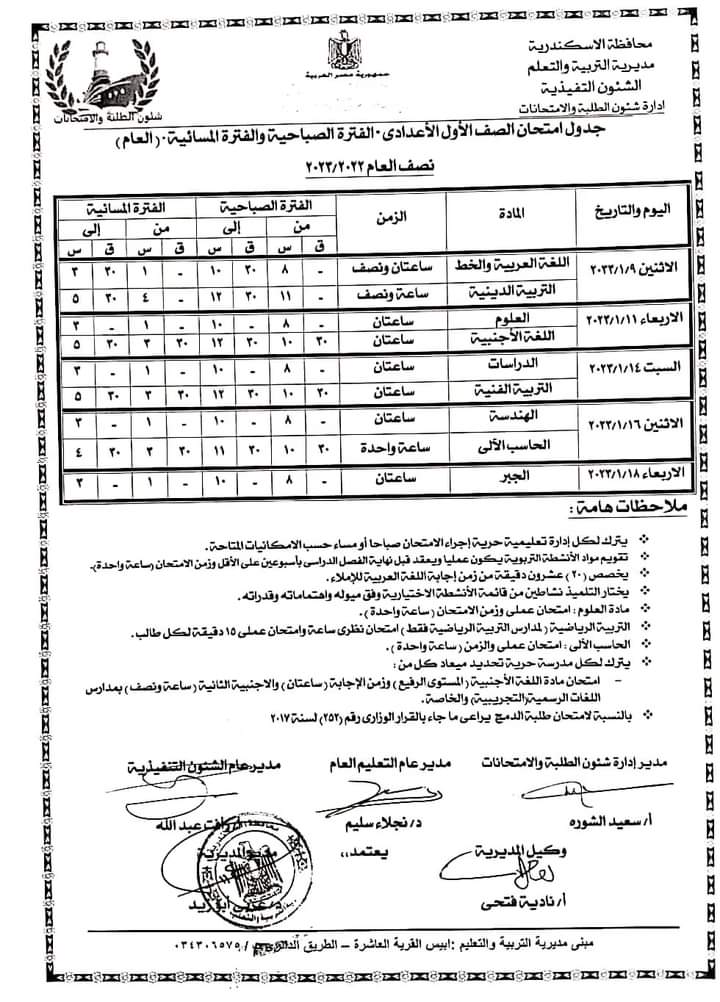 محافظة الاسكندرية
مديرية التربية والتعلم
الشئون التفيذية
إدارة شئون الطلبة والامتحانات
جمهورية مصر العربية
شئون الطلبة والامتحانات
جدول امتحان الصف الأول الأعدادى - الفترة الصباحية والفترة المسائية - (العام)
نصف العام ٢٠٢٣/٢٠٢٢
اليوم والتاريخ المادة الزمن الفترة الصباحية الفترة المسائية
من إلى من إلى
ق س ق س ق س ق س
الاثنين ٢٠٢٣/١/٩ اللغة العربية والخط ساعتان ونصف - ٨ ٣٠ ١٠ - ١ ٣٠ ٣
التربية الدينية ساعة ونصف - ١١ ٣٠ ١٢ - ٤ ٣٠ ٥
الاربعاء ٢٠٢٣/١/١١ العلوم ساعتان - ٨ - ١٠ - ١ - ٣
اللغة الأجنبية ساعتان ٣٠ ١٠ ٣٠ ١٢ ٣٠ ٣ ٣٠ ٥
السبت ٢٠٢٣/١/١٤ الدراسات ساعتان - ٨ - ١٠ - ١ - ٣
التربية الفنية ساعتان ٣٠ ١٠ ٣٠ ١٢ ٣٠ ٣ ٣٠ ٥
الاثنين ٢٠٢٣/١/١٦ الهندسة ساعتان - ٨ - ١٠ - ١ - ٣
الحاسب الألى ساعة واحدة ٣٠ ١٠ ٣٠ ١١ ٣٠ ٣ ٣٠ ٤
الاربعاء ٢٠٢٣/١/١٨ الجبر ساعتان - ٨ - ١٠ - ١ - ٣
ملاحظات هامة :
يترك لكل إدارة تعليمية حرية إجراء الامتحان صباحا أو مساء حسب الامكانيات المتاحة.
تقويم مواد الأنشطة التربوية يكون عمليا ويعقد قبل نهاية الفصل الدراسى بأسبوعين على الأقل وزمن الامتحان (ساعة واحدة).
يخصص (٢٠) عشرون دقيقة من زمن إجابة اللغة العربية للإملاء.
يختار التلميذ نشاطين من قائمة الأنشطة الاختيارية وفق ميوله واهتماماته وقدراته.
مادة العلوم : امتحان عملى وزمن الامتحان (ساعة واحدة).
التربية الرياضية (لمدارس التربية الرياضية فقط) امتحان نظرى ساعة وامتحان عملى ١٥ دقيقة لكل طالب.
الحاسب الألى : امتحان عملى والزمن (ساعة واحدة).
يترك لكل مدرسة حرية تحديد ميعاد كل من :
- امتحان مادة اللغة الأجنبية (المستوى الرفيع) وزمن الإجابة (ساعتان) والاجنبية الثانية (ساعة ونصف) بمدارس
اللغات الرسمية (التجريبية) والخاصة.
بالنسبة لامتحان طلبة الدمج يراعى ما جاء بالقرار الوزارى رقم (٢٥٢) لسنة ٢٠١٧
مدير إدارة شئون الطلبة والامتحانات مدير عام التعليم العام مدير عام الشئون التنفيذية
أ/ سعيد الشوره د/ نجلاء سليم رافت عبد الله
وكيل المديرية يعتمد،، مدير المديرية
أ/ نادية فتحى د/ عربى أبوزيد
مبنى مديرية التربية والتعليم : ابيس القرية العاشرة – الطريق الدائرى / ٠٣٤٣٠٦٥٧٥